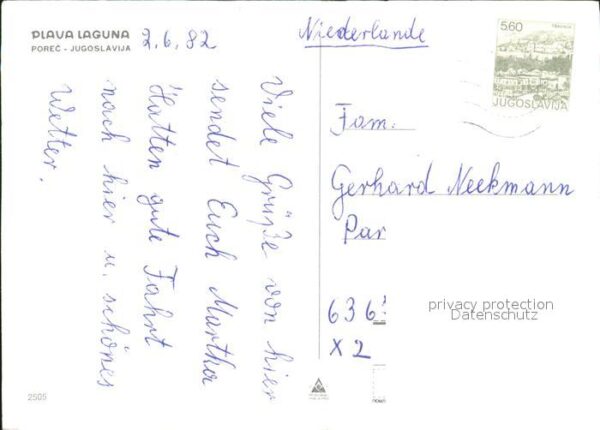 PLAVA LAGUNA
POREČ - JUGOSLAVIJA
2.6.82
Viele Grüße von hier
sendet Euch Martha
Hatten gute Fahrt
nach hier u. schönes
Wetter.
2505
Niederlande
5,60
JUGOSLAVIJA
Fam.
Gerhard Neekmann
Par
636
X2
privacy protection
Datenschutz